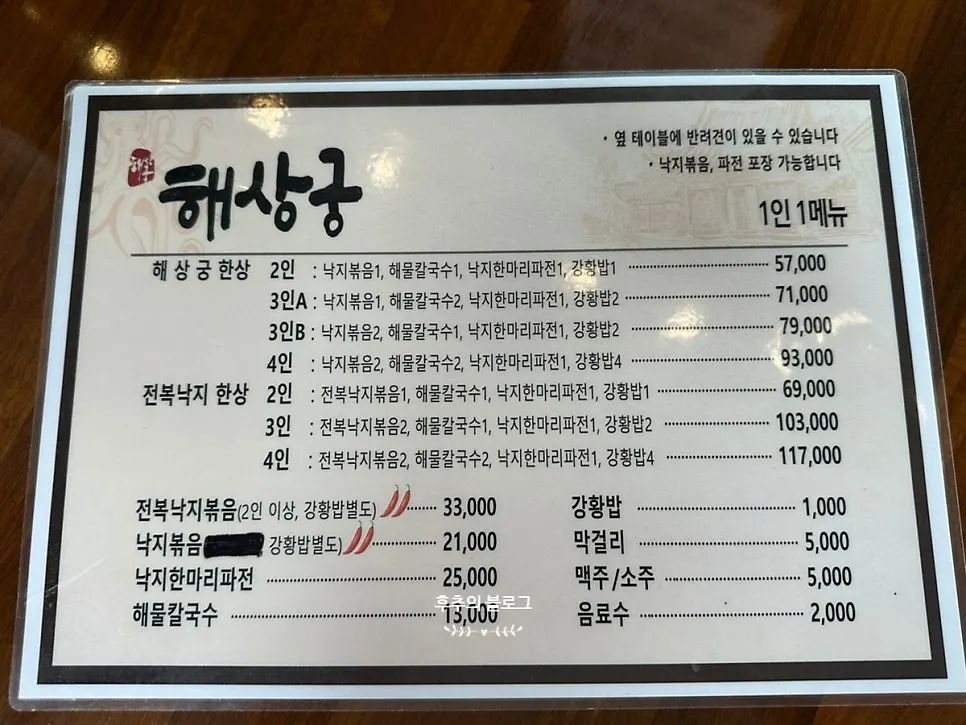 · 옆 테이블에 반려견이 있을 수 있습니다
· 낙지볶음, 파전 포장 가능합니다
해상궁
1인 1메뉴
해 상 궁 한상 2인 : 낙지볶음1, 해물칼국수1, 낙지한마리파전1, 강황밥1 57,000
3인A : 낙지볶음1, 해물칼국수2, 낙지한마리파전1, 강황밥2 71,000
3인B : 낙지볶음2, 해물칼국수1, 낙지한마리파전1, 강황밥2 79,000
4인 : 낙지볶음2, 해물칼국수2, 낙지한마리파전1, 강황밥4 93,000
전복낙지 한상 2인 : 전복낙지볶음1, 해물칼국수1, 낙지한마리파전1, 강황밥1 69,000
3인 : 전복낙지볶음2, 해물칼국수1, 낙지한마리파전1, 강황밥2 103,000
4인 : 전복낙지볶음2, 해물칼국수2, 낙지한마리파전1, 강황밥4 117,000
전복낙지볶음(2인 이상, 강황밥별도) 33,000
낙지볶음 강황밥별도) 21,000
낙지한마리파전 25,000
해물칼국수 13,000
강황밥 1,000
막걸리 5,000
맥주/소주 5,000
음료수 2,000
후추의 블로그